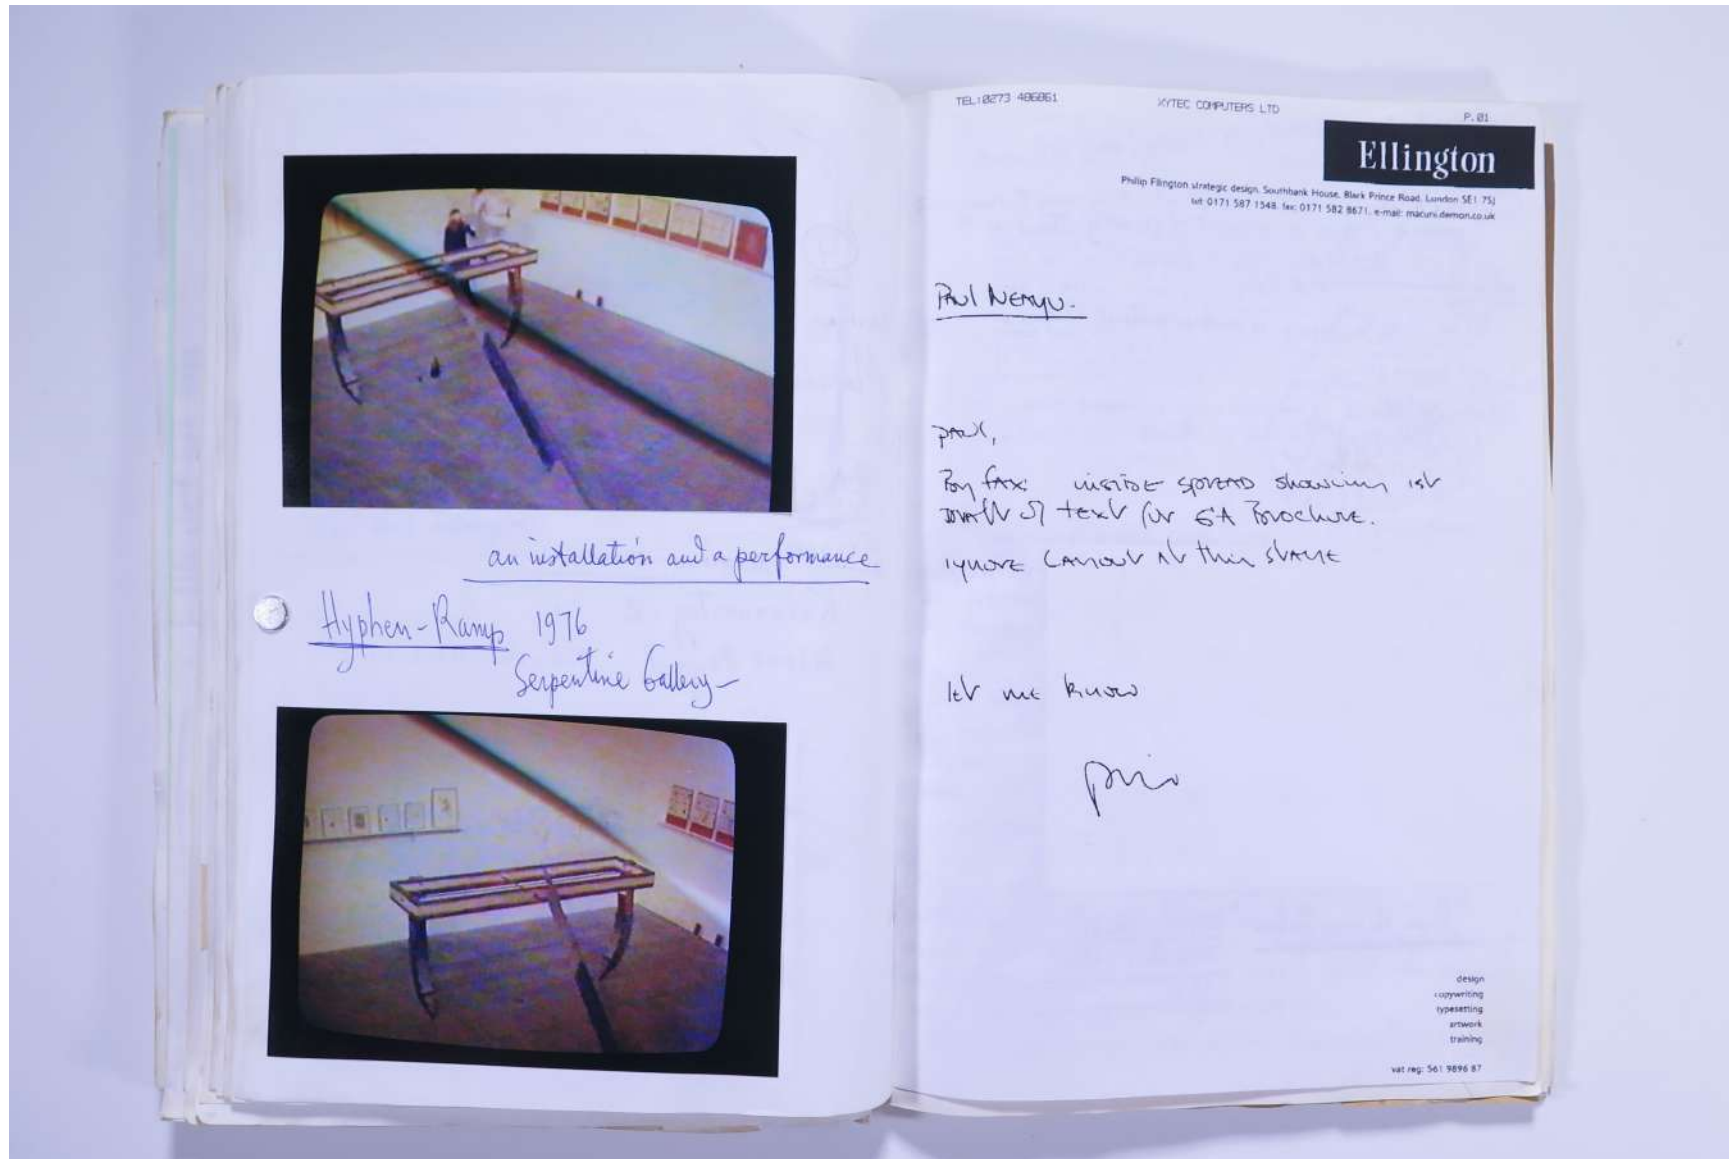 an installation and a performance
Hyphen-Ramp 1976
Serpentine Gallery-
TEL:0273 486861 XYTEC COMPUTERS LTD P.01
Ellington
Phillip Ellington strategic design, Southbank House, Black Prince Road, London SE1 7SJ
tel: 0171 587 1548 fax: 0171 582 8671 e-mail: macuni.demon.co.uk
Paul Neagu.
Paul,
By fax: inside spread showing 1st
draft of text for Brochure.
ignore layout at this stage
let me know
design
copywriting
typesetting
artwork
training
vat reg: 561 9896 87